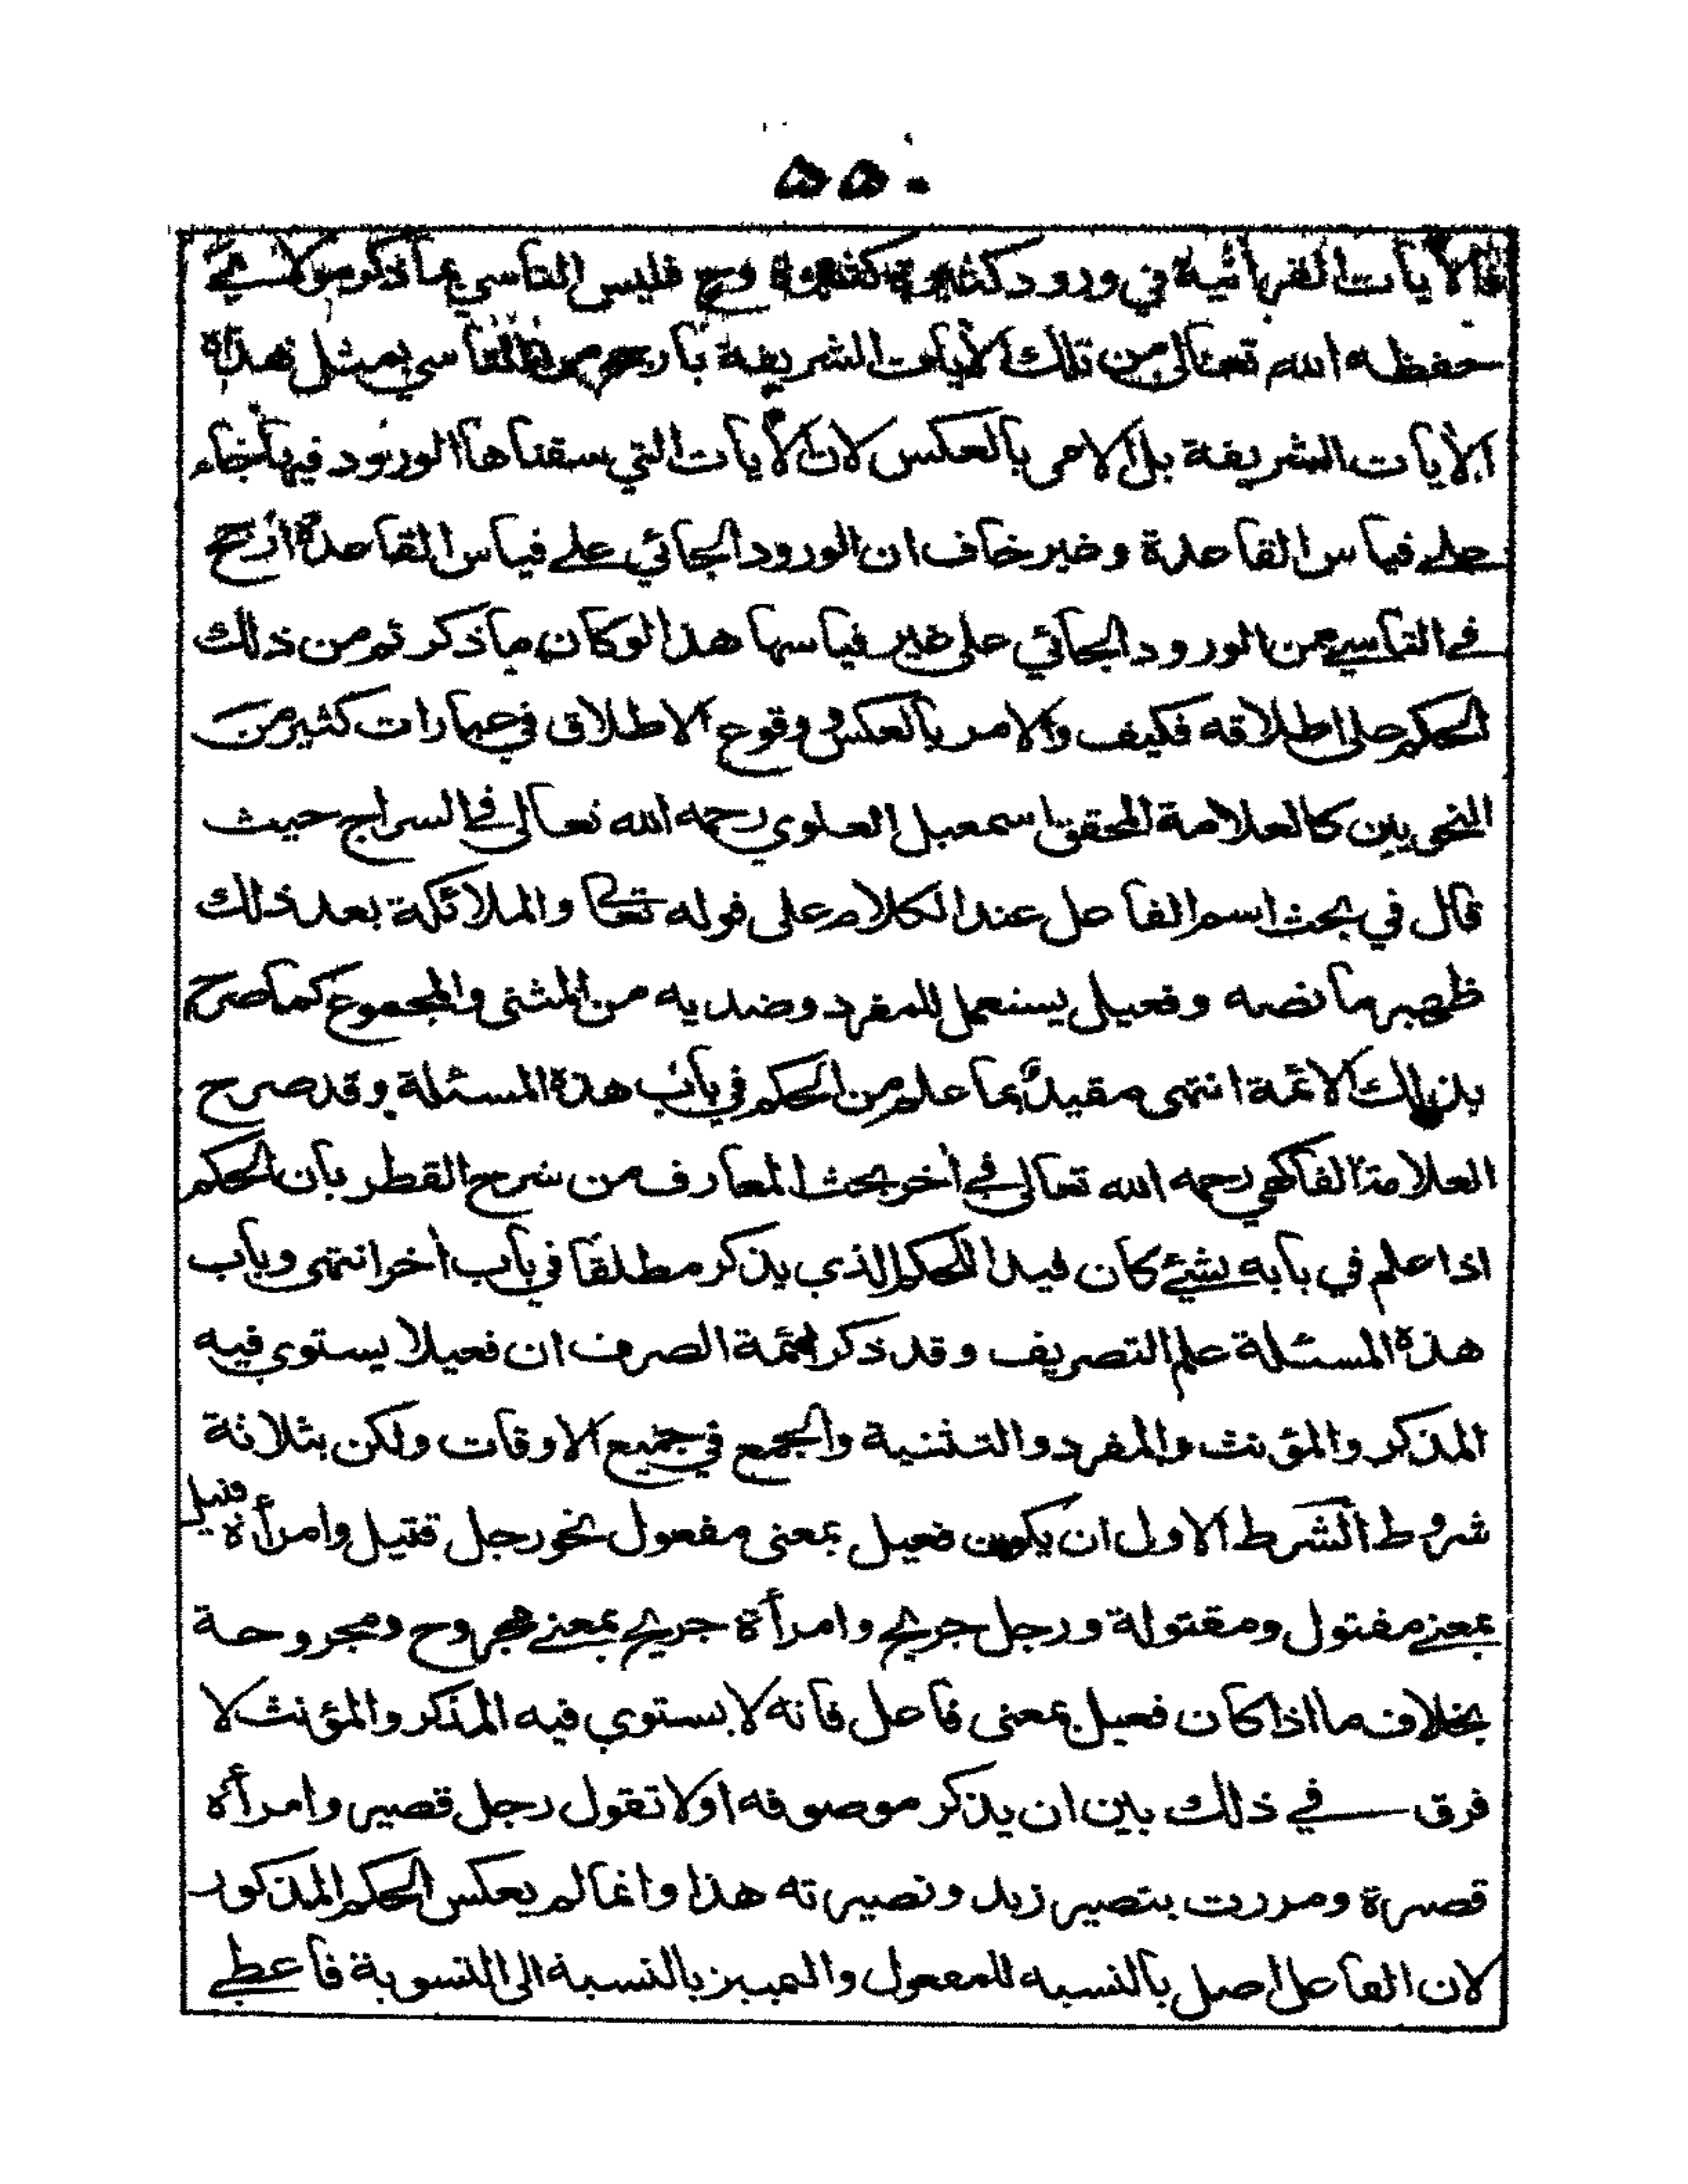 ٥٥٠
الآيات القرآنية في ورود كثير فليس التأسي بما ذكر مولانا
حفظه الله تعالى من تلك الآيات الشريفة بأرجح من التأسي بمثل هذه
الآيات الشريفة بل الامر بالعكس لان الآيات التي سقناها الورود فيها جاء
على قياس القاعدة وغير خاف ان الورود الجائي على قياس القاعدة ارجح
في التأسي من الورود الجائي على غير قياسها هذا لو كان ما ذكر ثم من ذلك
الحكم على اطلاقه فكيف والامر بالعكس ووقوع الاطلاق في عبارات كثير من
النحويين كالعلامة المحقق اسمعيل العلوي رحمه الله تعالى في السراج حيث
قال في بحث اسم الفاعل عند الكلام على قوله تعالى والملائكة بعد ذلك
ظهير ما نصه وفعيل يستعمل للمفرد وضديه من المثنى والمجموع كما صرح
بذلك الائمة انتهى مقيد بما علم من الحكم في باب هذة المسئلة وقد صرح
العلامة الفاكهي رحمه الله تعالى في أخر بحث المعارف من شرح القطر بأن الحكم
اذا علم في بابه بشيئ كان قيدا للحكم الذي يذكر مطلقا في باب أخر انتهى وباب
هذة المسئلة علم التصريف وقد ذكر ائمة الصرف ان فعيلا يستوي فيه
المذكر والمؤنث والمفرد والتثنية والجمع في جميع الاوقات ولكن بثلاثة
شروط الشرط الاول ان يكون فعيل بمعنى مفعول نحو رجل قتيل وامرأة قتيل
بمعنى مقتول ومقتولة ورجل جريح وامرأة جريح بمعنى مجروح ومجروحة
بخلاف ما اذا كان فعيل بمعنى فاعل فانه لا يستوي فيه المذكر والمؤنث لا
فرق في ذلك بين ان يذكر موصوفه اولا تقول رجل قصير وامرأة
قصيرة ومررت بتصير زيد ونصيرته هذا وانما لم يعكس الحكم المذكور
لان الفاعل اصل بالنسبه للمفعول والتمييز بالنسبة الى التسوية فأعطى